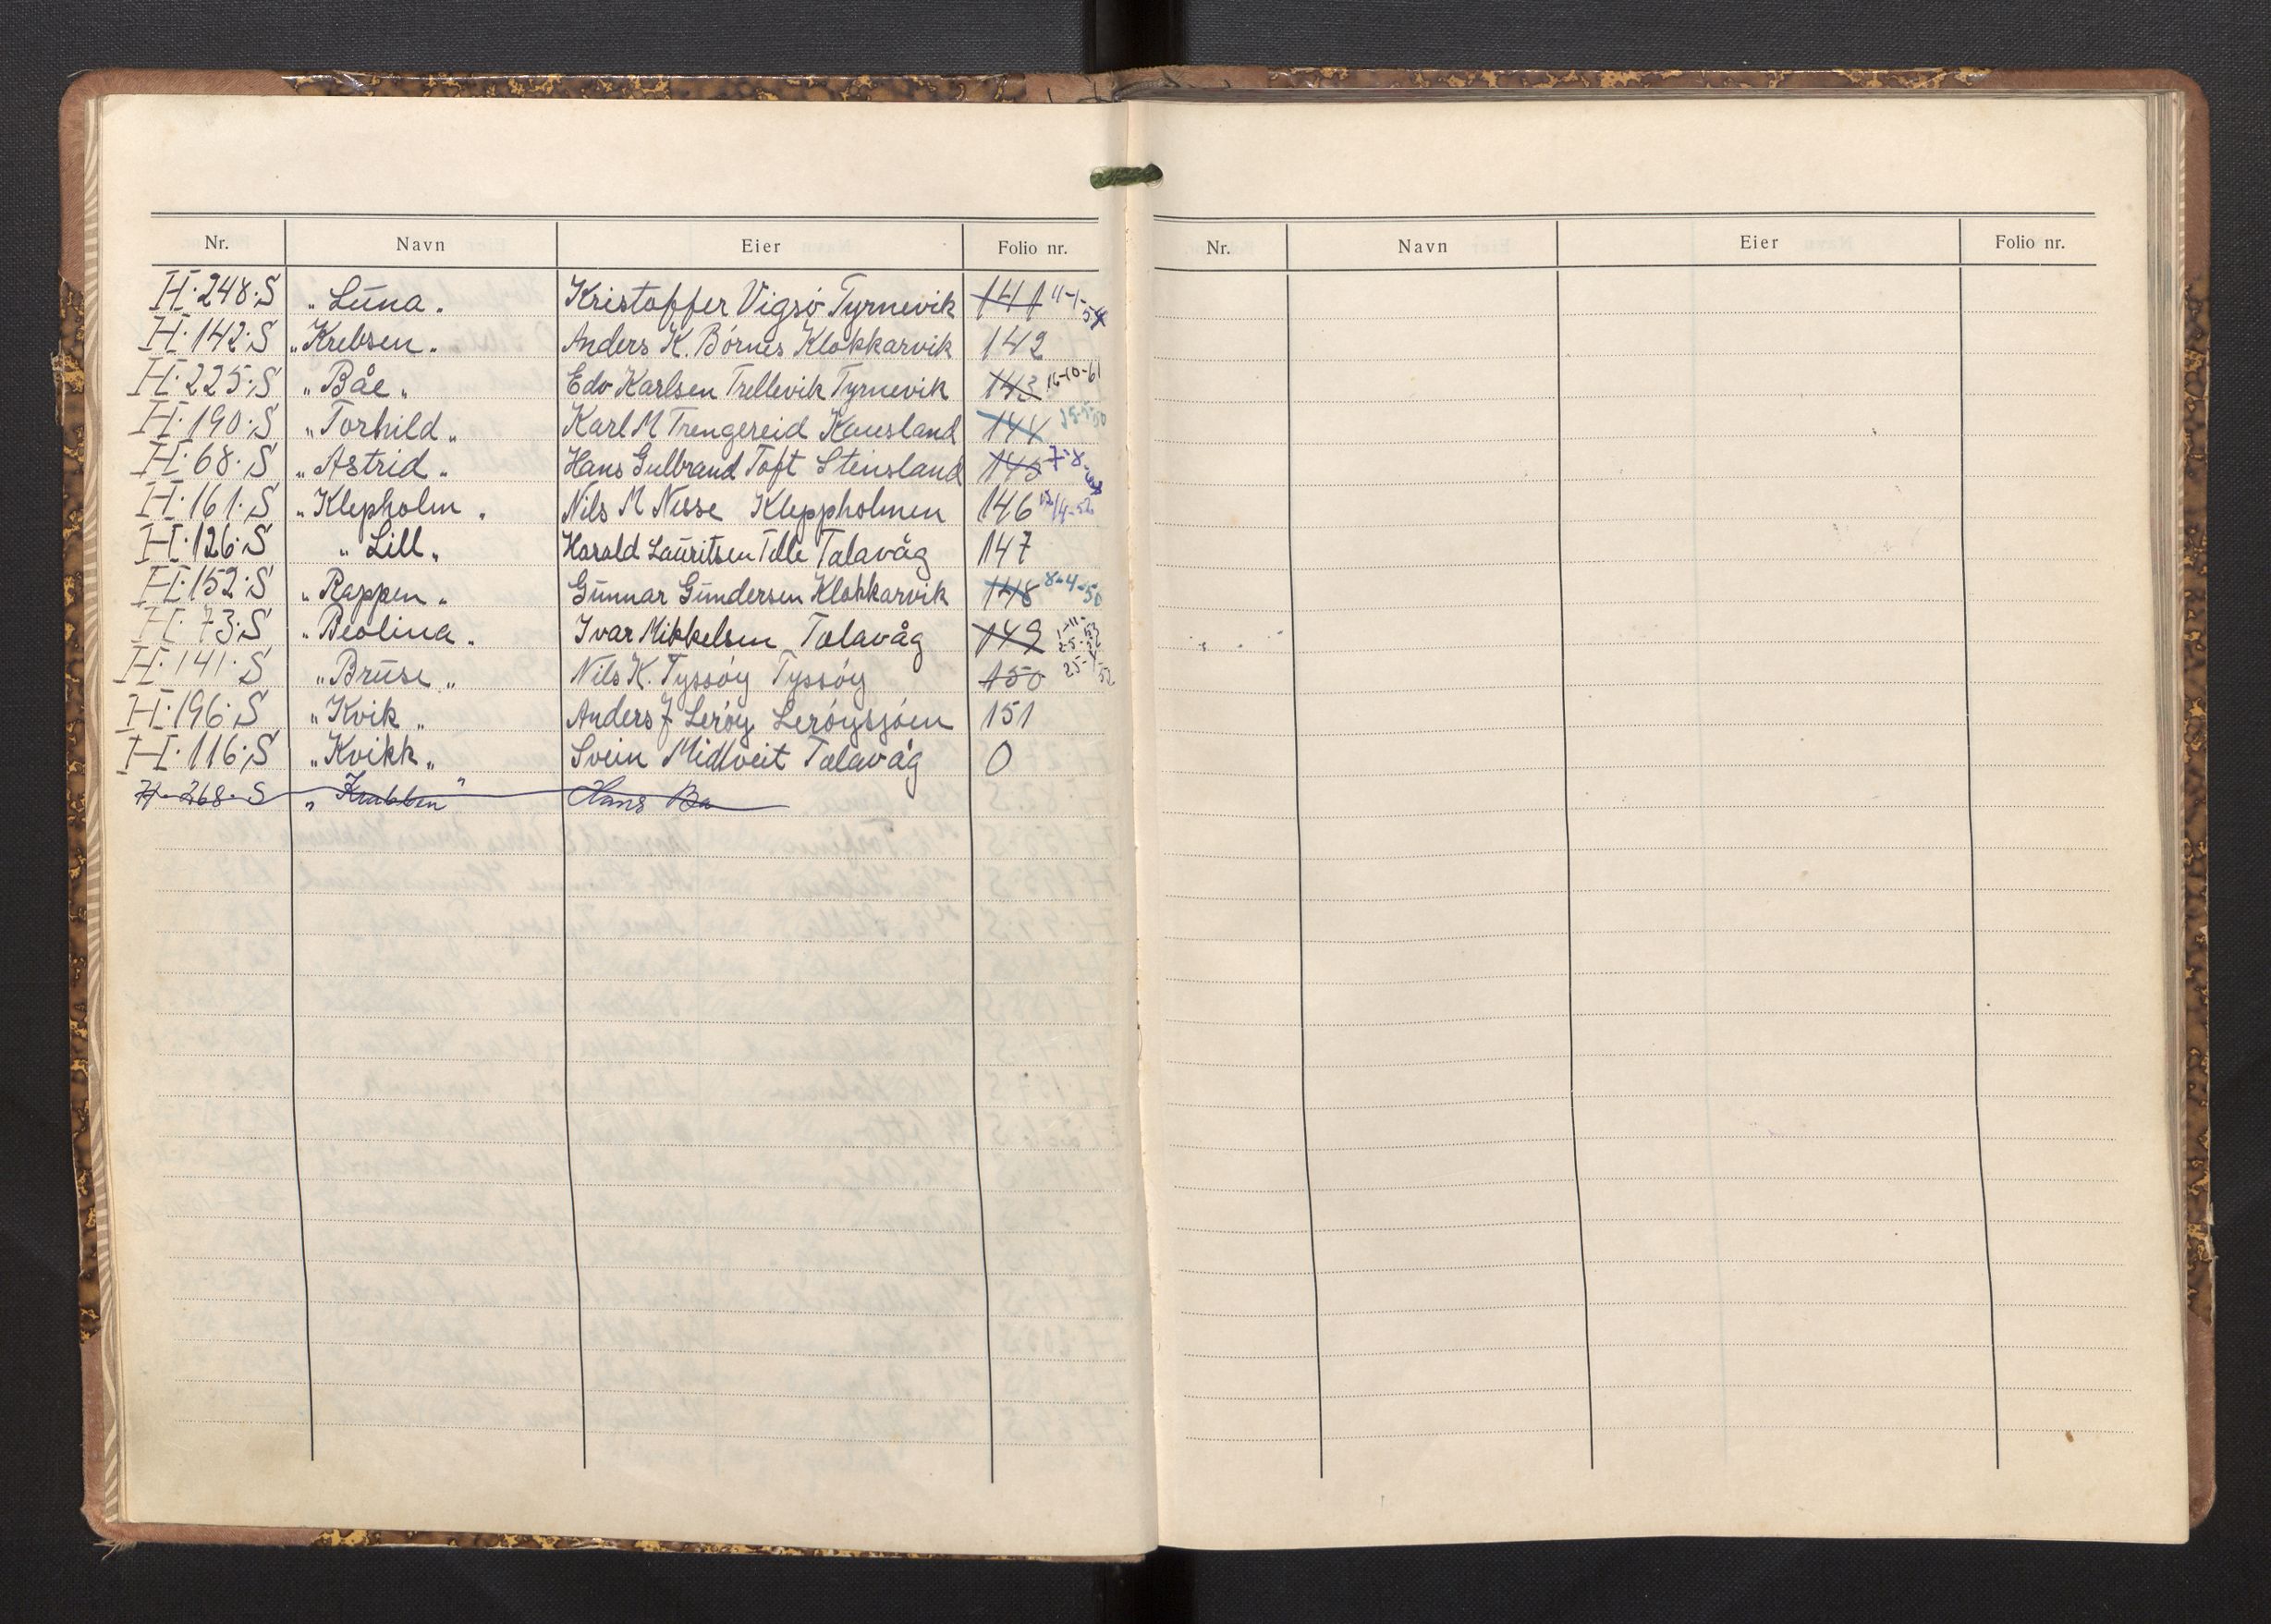 Nr. Navn Eier Folio nr.
H.248.S „Luna. Kristoffer Vigsø Tyrnevik 141 11-1-54
H.142.S „Krebsen. Anders K. Børnes Klokkarvik 142
H.225.S „Båe„ Edv Karlsen Trellevik Tyrnevik 143 16-10-61
H.190.S „Torhild„ Karl M Trengereid Kausland 144
H.68.S „Astrid„ Hans Gulbrand Toft Steinsland 145 7-8-
H.161.S „Klepholm. Nils M Nesse Kleppholmen 146
H.126.S „Lill„ Harald Lauritsen Telle Telavåg 147
H.152.S „Rappen„ Gunnar Gundersen Klokkarvik 148 8-4-50
H.73.S „Beolina„ Ivar Mikkelsen Telavåg 149
H.141.S „Bruse„ Nils K. Tyssøy Tyssøy 150
H.196.S „Kvik„ Anders J Lerøy Lerøysjøen 151
H.116.S „Kvikk„ Svein Midtveit Telavåg 0
H.268.S „Krabben" Hans Ba
Nr. Navn Eier Folio nr.